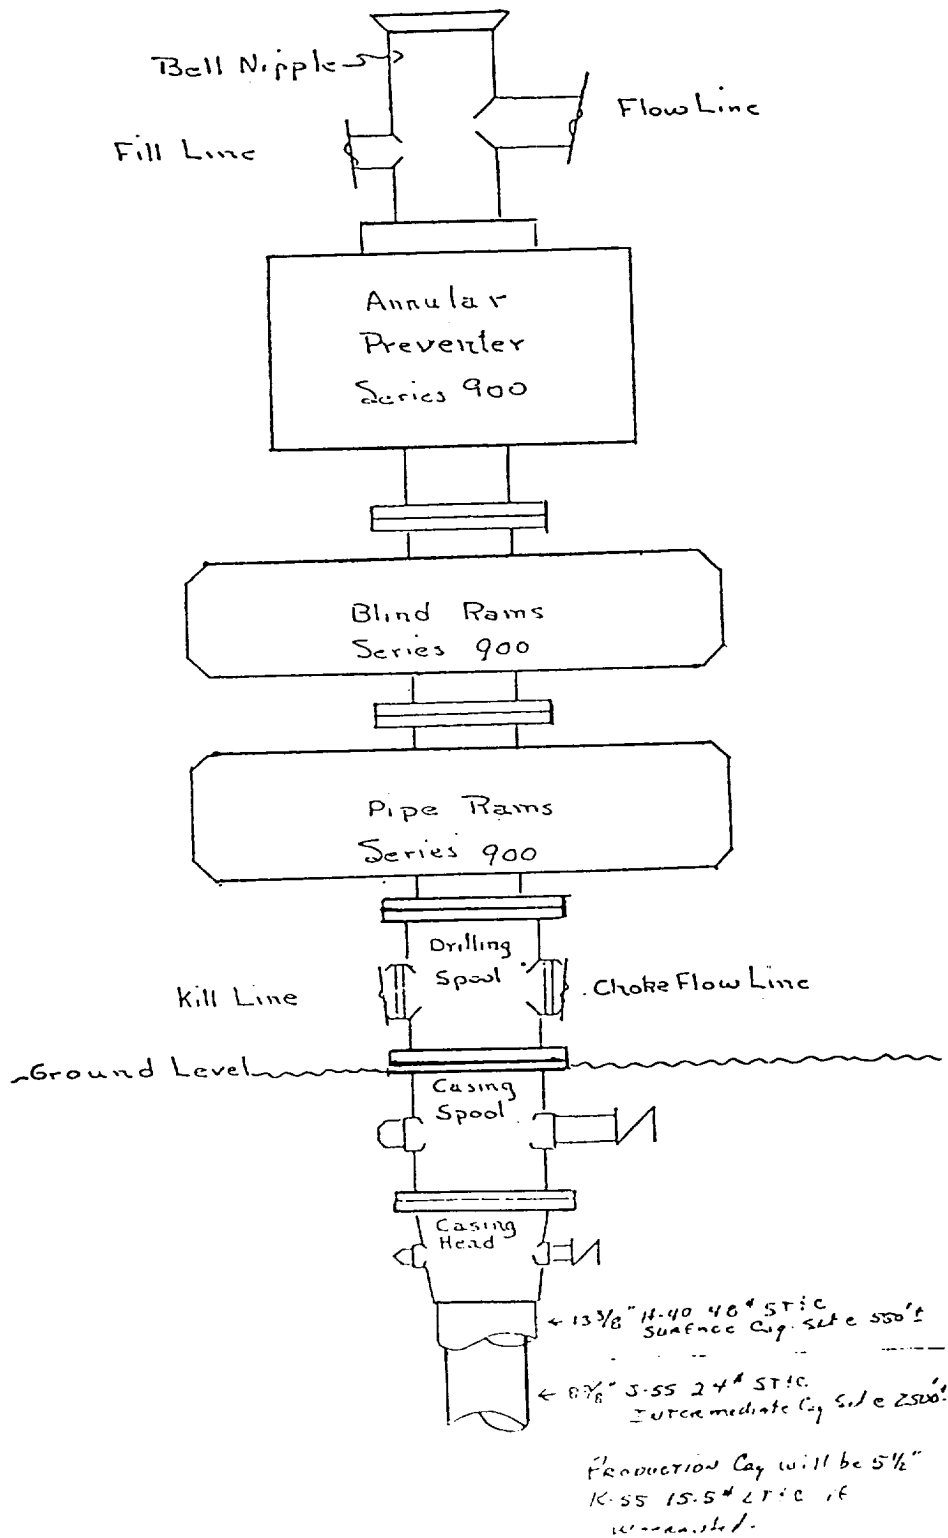 Bell Nipple
Flow Line
Fill Line
Annular
Preventer
Series 900
Blind Rams
Series 900
Pipe Rams
Series 900
Drilling
Spool
Kill Line
Choke Flow Line
Ground Level
Casing
Spool
Casing
Head
← 13 3/8" H-40 48# ST&C
Surface Csg. Set @ 550'±
← 8 5/8" J-55 24# ST&C
Intermediate Csg Set @ 2500'±
Production Csg will be 5 1/2"
K-55 15.5# LT&C if